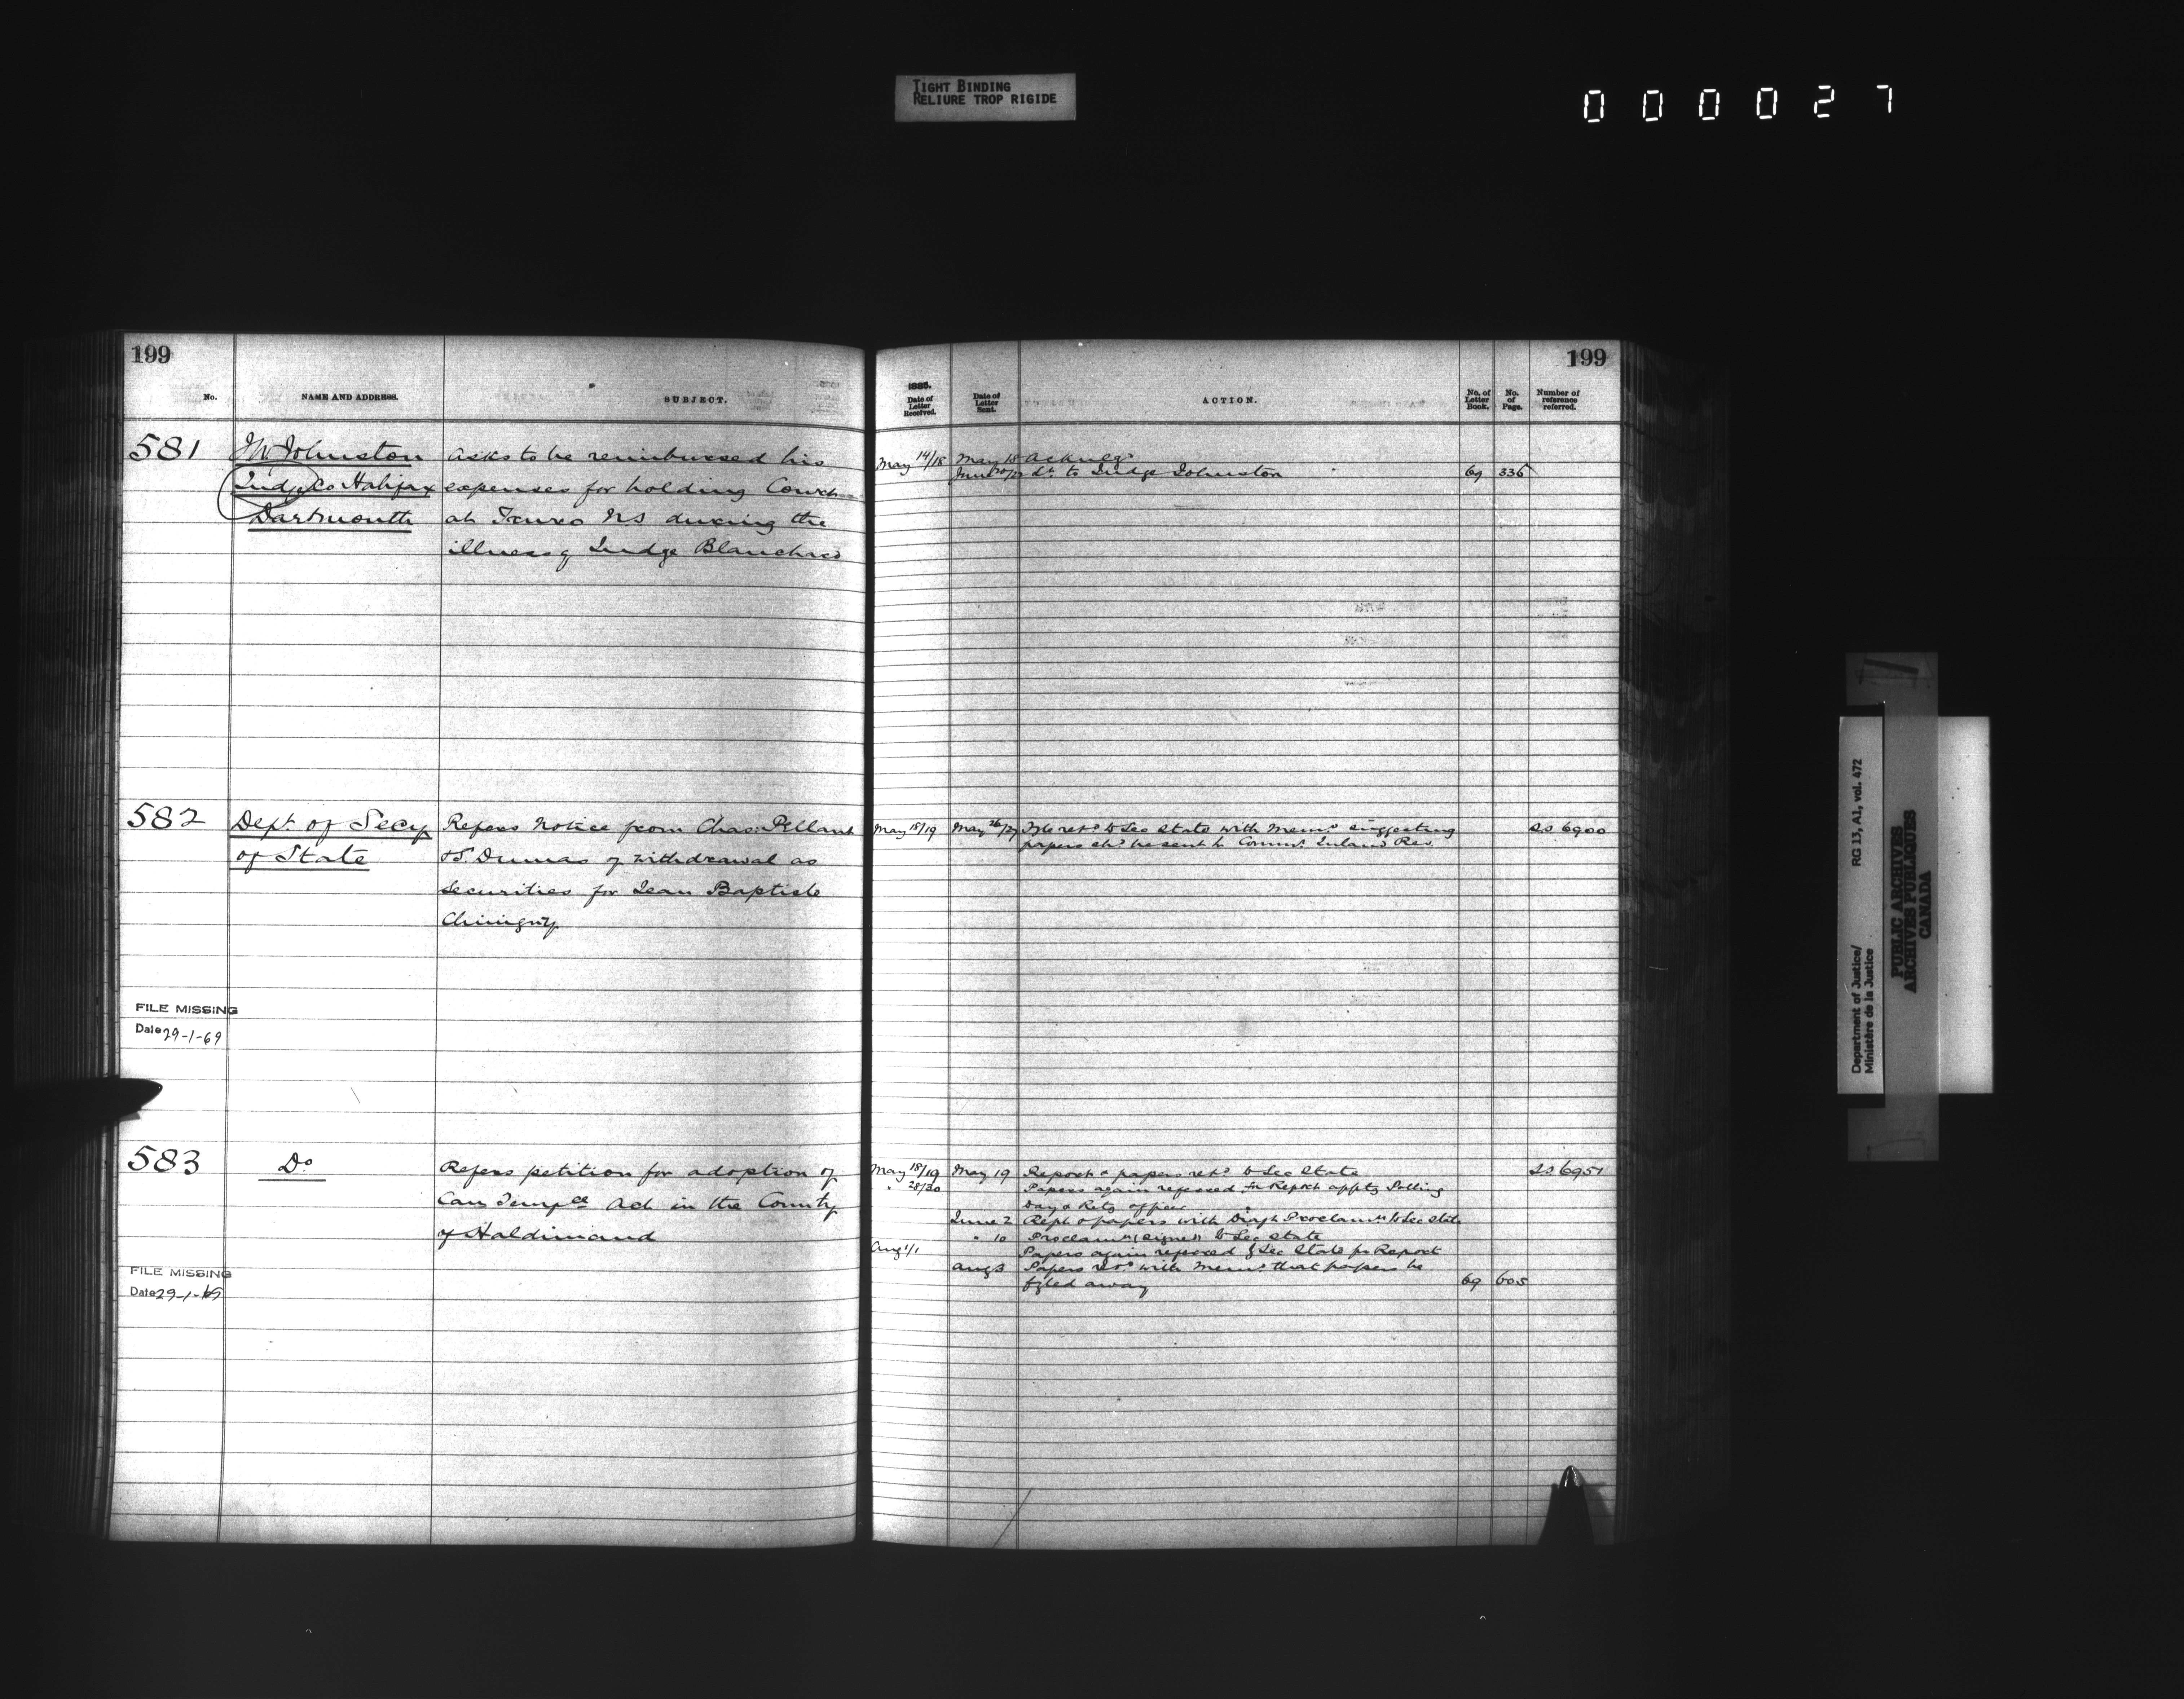 TIGHT BINDING
RELIURE TROP RIGIDE
000027
199
No.
NAME AND ADDRESS.
SUBJECT.
581
Johnston
Judge Co Halifax
Dartmouth
Asks to be reimbursed his
expenses for holding Court
at Truro NS during the
illness of Judge Blanchard
582
Dept. of Secy
of State
Refers Notice from Chas.
& S. Dumas of withdrawal as
securities for Jean Baptiste
Chinigny
FILE MISSING
Date 29-1-69
583
Do
Refers petition for adoption of
Can Tempce Act in the County
of Haldimand
FILE MISSING
Date 29-1-69
199
1885.
Date of
Letter
Received.
Date of
Letter
Sent.
ACTION.
No. of
Letter
Book.
No.
of
Page.
Number of
reference
referred.
May 14/18
May 18 Acknlgd
June Lr. to Judge Johnston
69 336
May 18/19 May 26/27 retd to Sec State with Memo suggesting
papers shd be sent to Commr. Inland Rev.
SS 6900
May 18/19 May 19 Report & papers retd to Sec State
SS 6951
" 28/30 Papers again referred for Report apptg Polling
Day & Retg officer
June 2 Rept & papers with Draft Proclamn to Sec State
" 10 Proclamn (signed) to Sec State
Aug 1/1 Papers again referred by Sec State for Report
Aug 3 Papers retd with Memo. that papers be
fyled away
69 605
Department of Justice/
Ministère de la Justice
RG 13, A1, vol. 472
PUBLIC ARCHIVES
ARCHIVES PUBLIQUES
CANADA